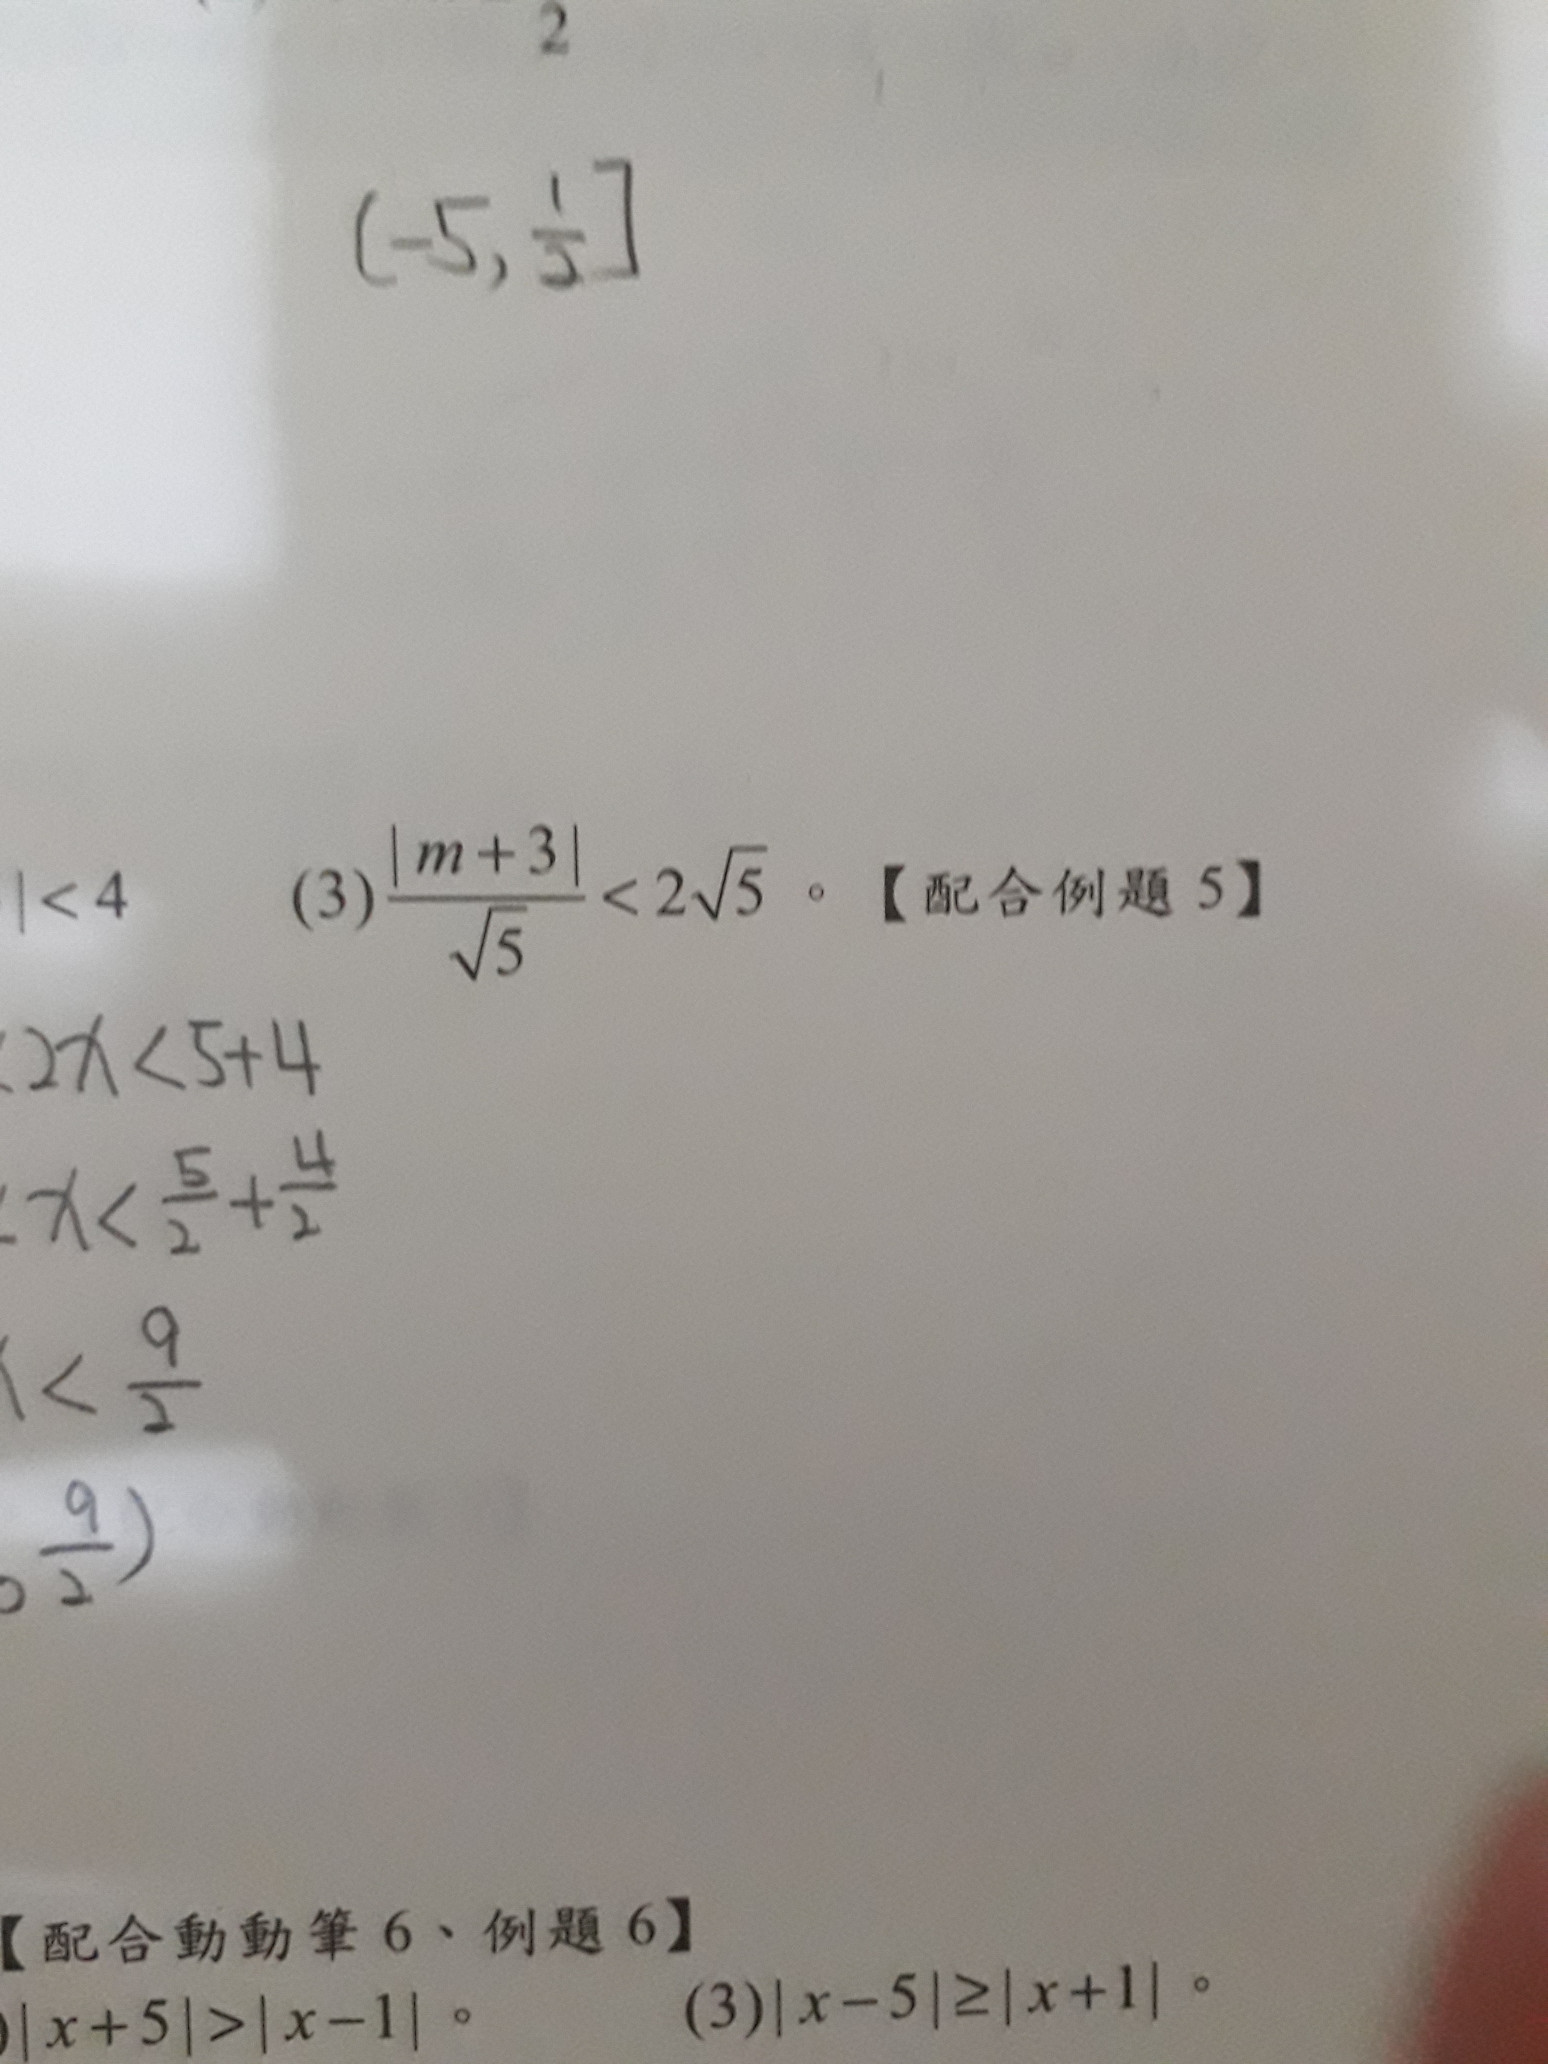 2
(-5, 1/2]
|<4 (3) |m+3|/√5 < 2√5 。【配合例題 5】
<2x<5+4
<x<5/2+4/2
x<9/2
9/2)
【配合動動筆 6、例題 6】
)|x+5|>|x−1|。 (3)|x−5|≥|x+1|。